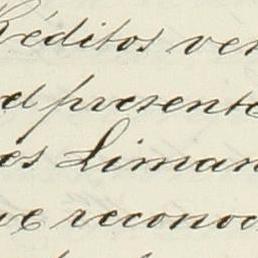 Réditos ven
el presente
es Liman
ue reconoc